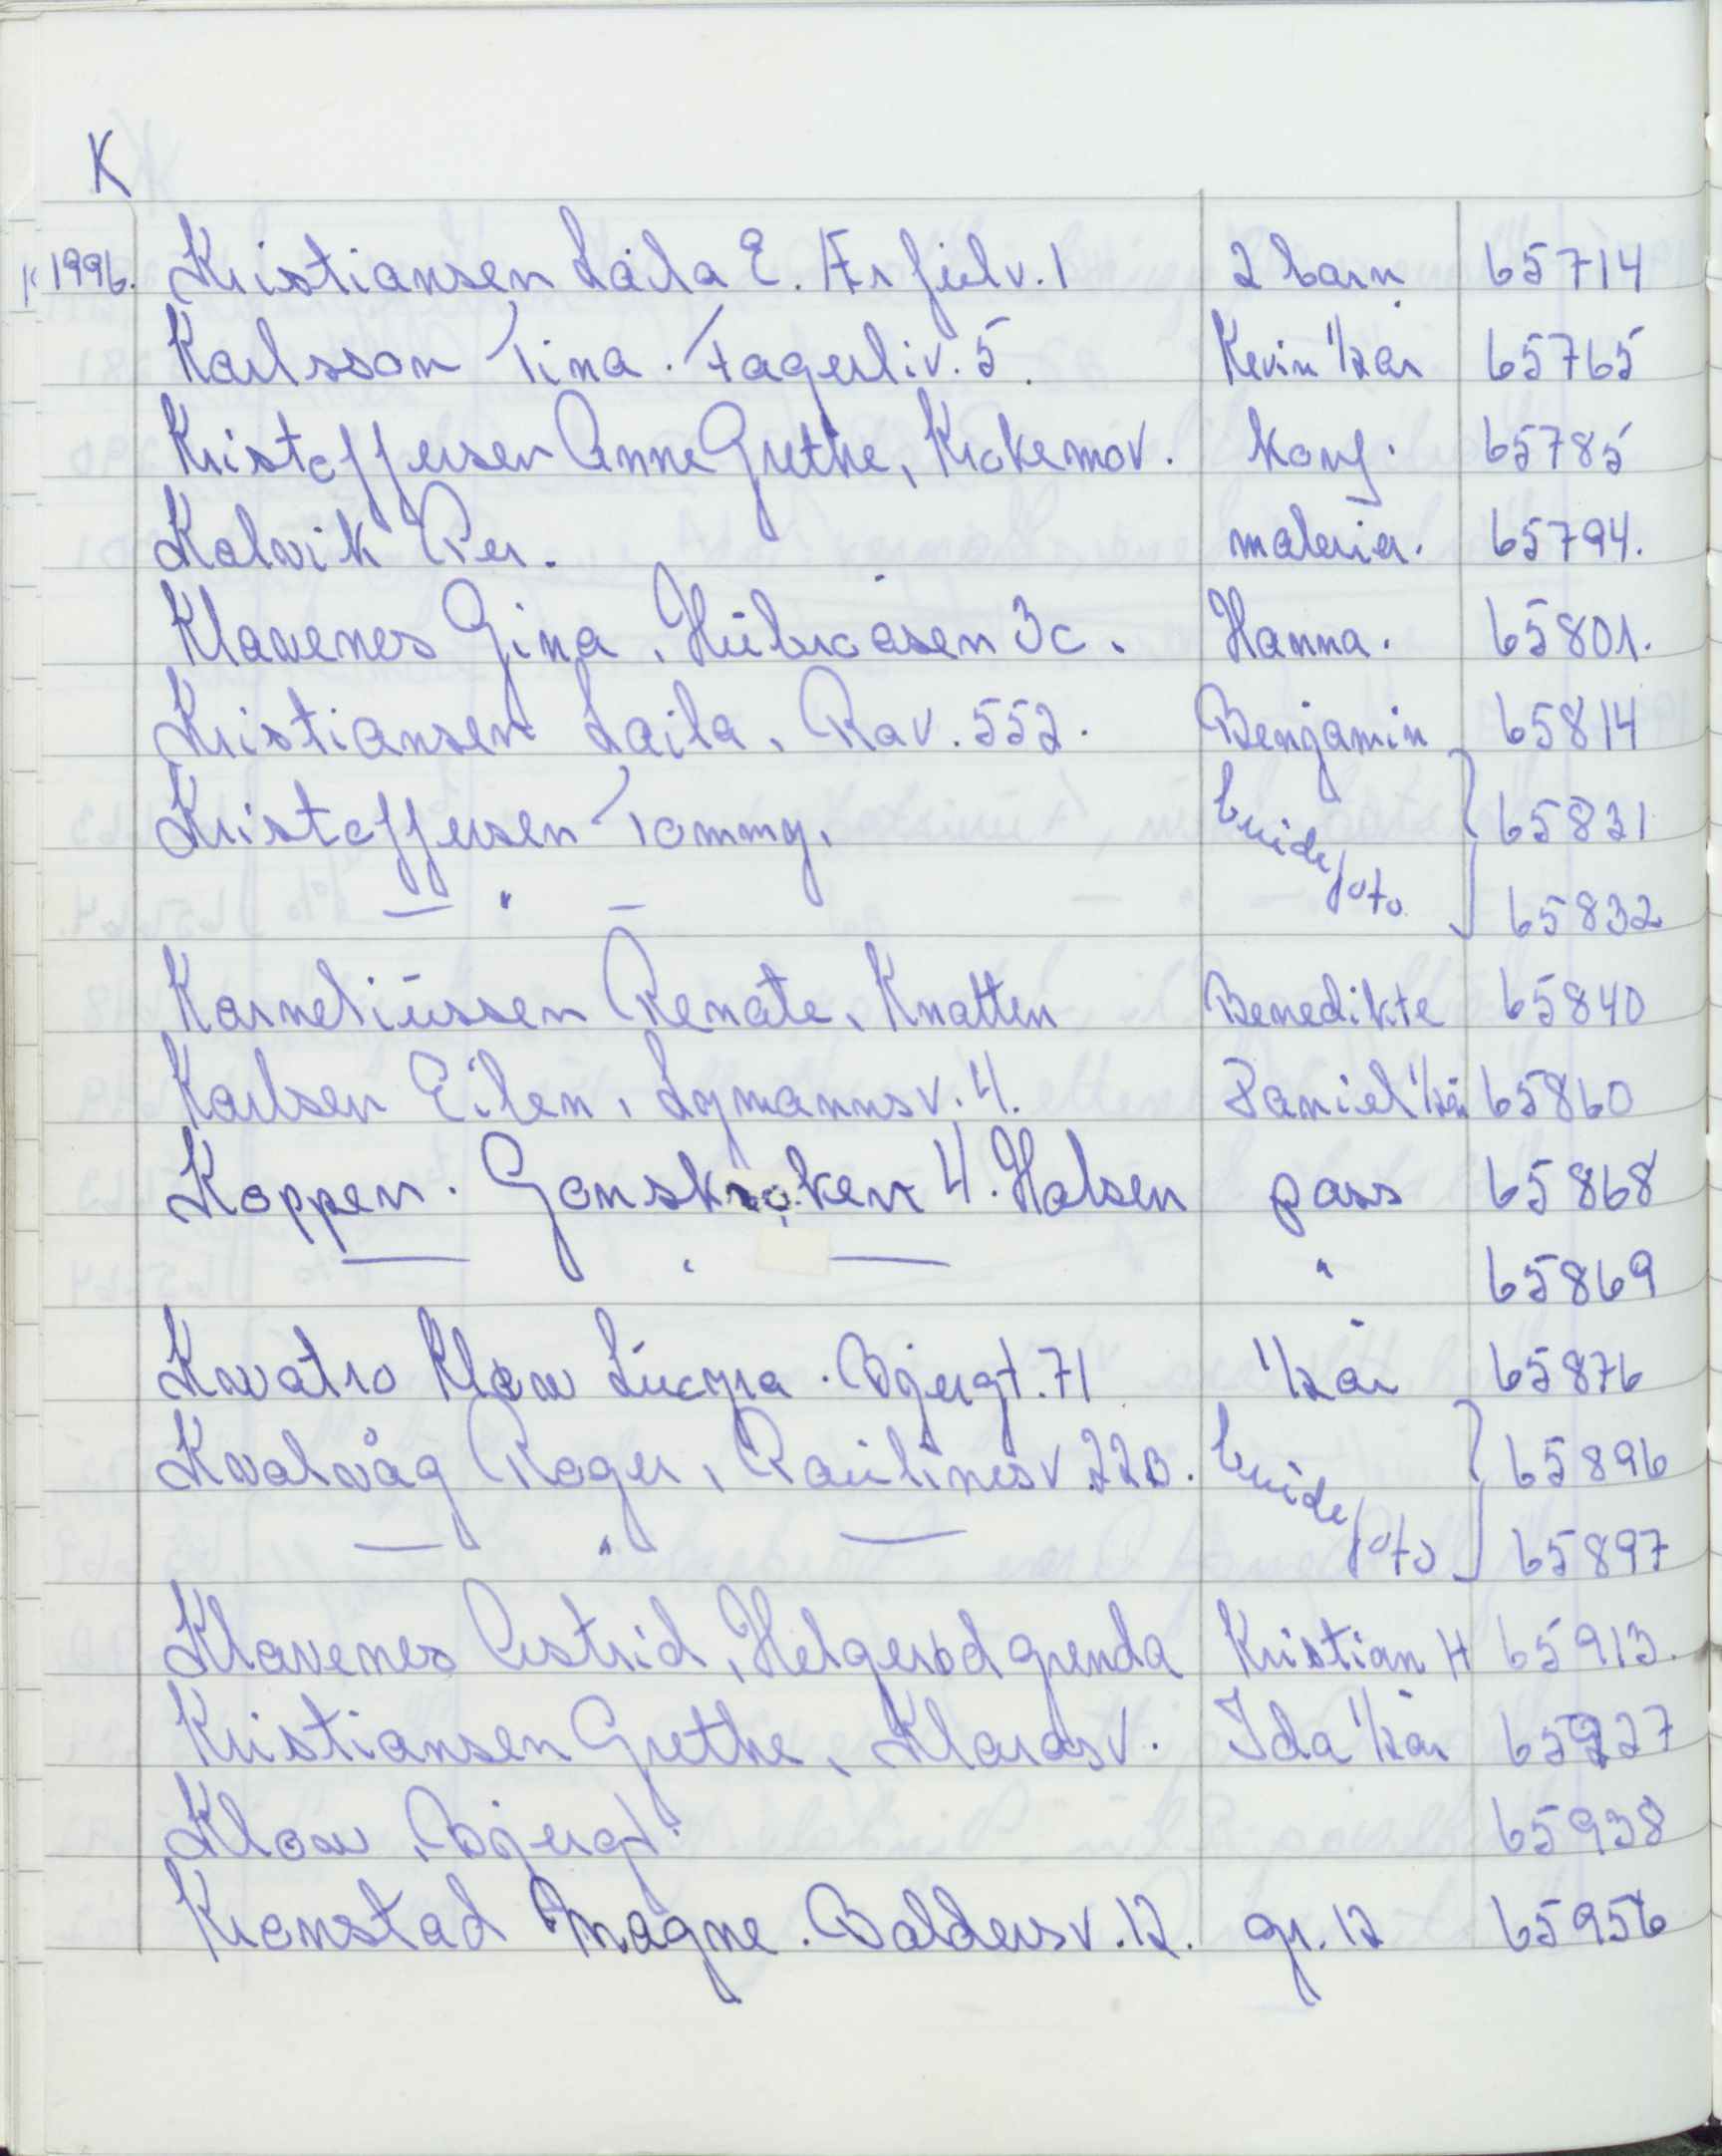 K
1996. Kristiansen Laila E. Fr juelv. 1 2 barn 65714
Karlsson Tina. Fagerliv. 5. Kevin 1/2 år 65765
Kristoffersen Anne Grethe, Krokemov. konf. 65785
Kalvik Per. malerier. 65794.
Klavenes Gina, Hübroåsen 3c. Hanna. 65801.
Kristiansen Laila, Rav. 552. Benjamin 65814
Kristoffersen Tommy, brude/foto } 65831
— " — 65832
Korneliussen Renate, Knatten Benedikte 65840
Karlsen Eilen, Lymannsv. 4. Daniel 1/2 år 65860
Koppen. Gonskroken 4. Halsen pass 65868
— " — " 65869
Kvatro Klow Lucyra. Bjergt. 71 1/2 år 65876
Kvalvåg Roger, Paulinesv 22B. brude/foto } 65896
— " — 65897
Klavenes Astrid, Helgerød grenda Kristian H 65913.
Kristiansen Grethe, Klarasv. Ida 1/2 år 65927
Klow, Bjergt. 65938
Kronstad Magne. Baldersv. 12. gr. 12 65956